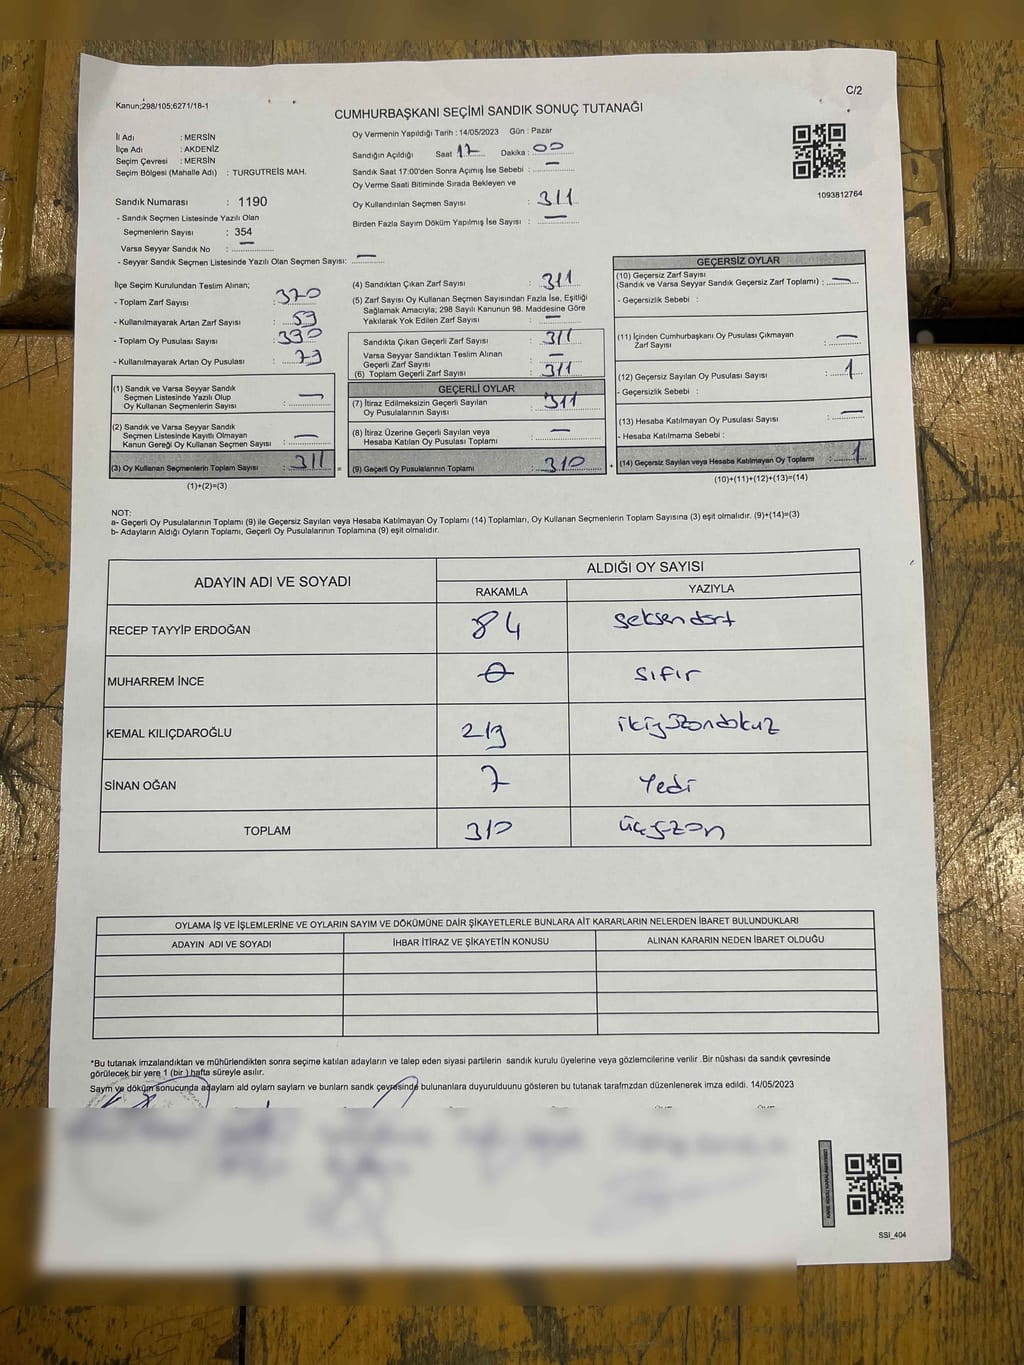 Kanun;298/105;6271/18-1
C/2
CUMHURBAŞKANI SEÇİMİ SANDIK SONUÇ TUTANAĞI
İl Adı : MERSİN
İlçe Adı : AKDENİZ
Seçim Çevresi : MERSİN
Seçim Bölgesi (Mahalle Adı) : TURGUTREİS MAH.
Oy Vermenin Yapıldığı Tarih : 14/05/2023 Gün : Pazar
Sandığın Açıldığı Saat 17 Dakika : 00
Sandık Saat 17:00'den Sonra Açımış İse Sebebi : —
Oy Verme Saati Bitiminde Sırada Bekleyen ve
Oy Kullandırılan Seçmen Sayısı : 311
Birden Fazla Sayım Döküm Yapılmış İse Sayısı : —
1093812764
Sandık Numarası : 1190
- Sandık Seçmen Listesinde Yazılı Olan
Seçmenlerin Sayısı : 354
Varsa Seyyar Sandık No : —
- Seyyar Sandık Seçmen Listesinde Yazılı Olan Seçmen Sayısı: —
İlçe Seçim Kurulundan Teslim Alınan;
- Toplam Zarf Sayısı : 370
- Kullanılmayarak Artan Zarf Sayısı : 59
- Toplam Oy Pusulası Sayısı : 390
- Kullanılmayarak Artan Oy Pusulası : 79
(1) Sandık ve Varsa Seyyar Sandık
Seçmen Listesinde Yazılı Olup
Oy Kullanan Seçmenlerin Sayısı : —
(2) Sandık ve Varsa Seyyar Sandık
Seçmen Listesinde Kayıtlı Olmayan
Kanun Gereği Oy Kullanan Seçmen Sayısı : —
(3) Oy Kullanan Seçmenlerin Toplam Sayısı : 311 =
(1)+(2)=(3)
(4) Sandıktan Çıkan Zarf Sayısı : 311
(5) Zarf Sayısı Oy Kullanan Seçmen Sayısından Fazla İse, Eşitliği
Sağlamak Amacıyla; 298 Sayılı Kanunun 98. Maddesine Göre
Yakılarak Yok Edilen Zarf Sayısı : —
Sandıkta Çıkan Geçerli Zarf Sayısı : 311
Varsa Seyyar Sandıktan Teslim Alınan
Geçerli Zarf Sayısı : —
(6) Toplam Geçerli Zarf Sayısı : 311
GEÇERLİ OYLAR
(7) İtiraz Edilmeksizin Geçerli Sayılan
Oy Pusulalarının Sayısı : 311
(8) İtiraz Üzerine Geçerli Sayılan veya
Hesaba Katılan Oy Pusulası Toplamı : —
(9) Geçerli Oy Pusulalarının Toplamı : 310 +
GEÇERSİZ OYLAR
(10) Geçersiz Zarf Sayısı
(Sandık ve Varsa Seyyar Sandık Geçersiz Zarf Toplamı) : —
- Geçersizlik Sebebi :
(11) İçinden Cumhurbaşkanı Oy Pusulası Çıkmayan
Zarf Sayısı : —
(12) Geçersiz Sayılan Oy Pusulası Sayısı : 1
- Geçersizlik Sebebi :
(13) Hesaba Katılmayan Oy Pusulası Sayısı : —
- Hesaba Katılmama Sebebi :
(14) Geçersiz Sayılan veya Hesaba Katılmayan Oy Toplamı : 1
(10)+(11)+(12)+(13)=(14)
NOT:
a- Geçerli Oy Pusulalarının Toplamı (9) ile Geçersiz Sayılan veya Hesaba Katılmayan Oy Toplamı (14) Toplamları, Oy Kullanan Seçmenlerin Toplam Sayısına (3) eşit olmalıdır. (9)+(14)=(3)
b- Adayların Aldığı Oyların Toplamı, Geçerli Oy Pusulalarının Toplamına (9) eşit olmalıdır.
ADAYIN ADI VE SOYADI ALDIĞI OY SAYISI
RAKAMLA YAZIYLA
RECEP TAYYİP ERDOĞAN 84 seksendört
MUHARREM İNCE 0 sıfır
KEMAL KILIÇDAROĞLU 219 ikiyüzondokuz
SİNAN OĞAN 7 Yedi
TOPLAM 310 üçyüzon
OYLAMA İŞ VE İŞLEMLERİNE VE OYLARIN SAYIM VE DÖKÜMÜNE DAİR ŞİKAYETLERLE BUNLARA AİT KARARLARIN NELERDEN İBARET BULUNDUKLARI
ADAYIN ADI VE SOYADI İHBAR İTİRAZ VE ŞİKAYETİN KONUSU ALINAN KARARIN NEDEN İBARET OLDUĞU
*Bu tutanak imzalandıktan ve mühürlendikten sonra seçime katılan adayların ve talep eden siyasi partilerin sandık kurulu üyelerine veya gözlemcilerine verilir .Bir nüshası da sandık çevresinde
görülecek bir yere 1 (bir ) hafta süreyle asılır.
Sayım ve döküm sonucunda adaylam ald oylam saylam ve bunlam sandk çevresinde bulunanlara duyurulduunu gösteren bu tutanak tarafmzdan düzenlenerek imza edildi. 14/05/2023
SSI_404